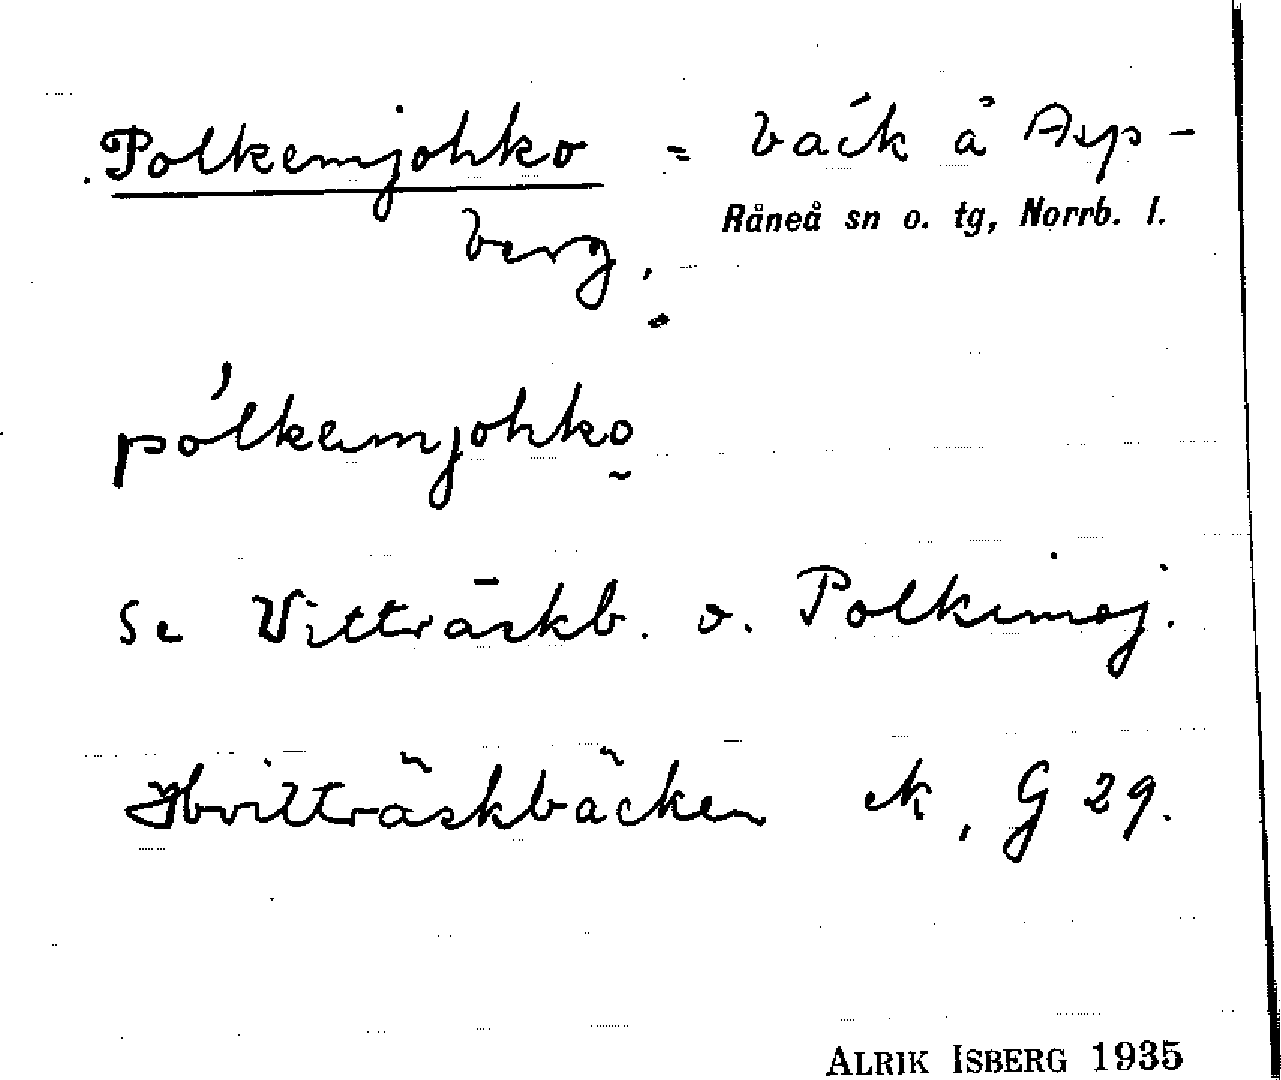 Polkemjohko = bäck å Asp-
Råneå sn o. tg, Norrb. l.
berg.
pólkemjohko̰
se Vitträskb. o. Polkemaj.
Hvitträskbäcken ek, G 29.
ALRIK ISBERG 1935